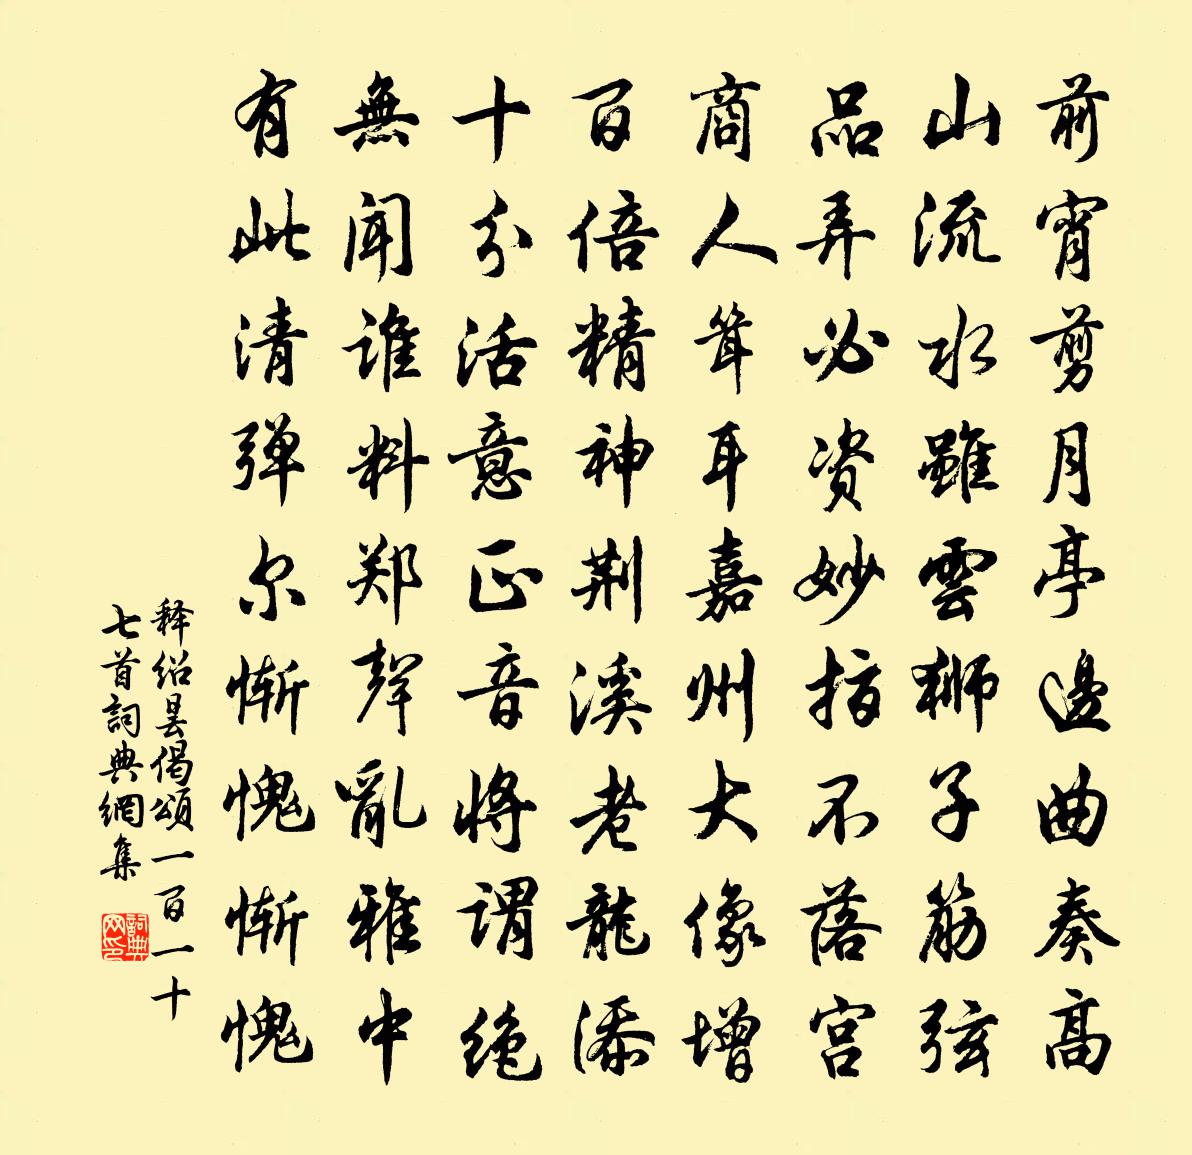 前宵剪月亭邊曲奏高
山流水雖雲獅子筋弦
品弄必资妙指不落宫
商人耸耳嘉州大像增
百倍精神荆溪老龍添
十分活意正音將謂绝
無闻谁料郑聲亂雅中
有此清弹尔惭愧惭愧
释绍昙偈頌一百一十
七首詞典網集
詞典网印